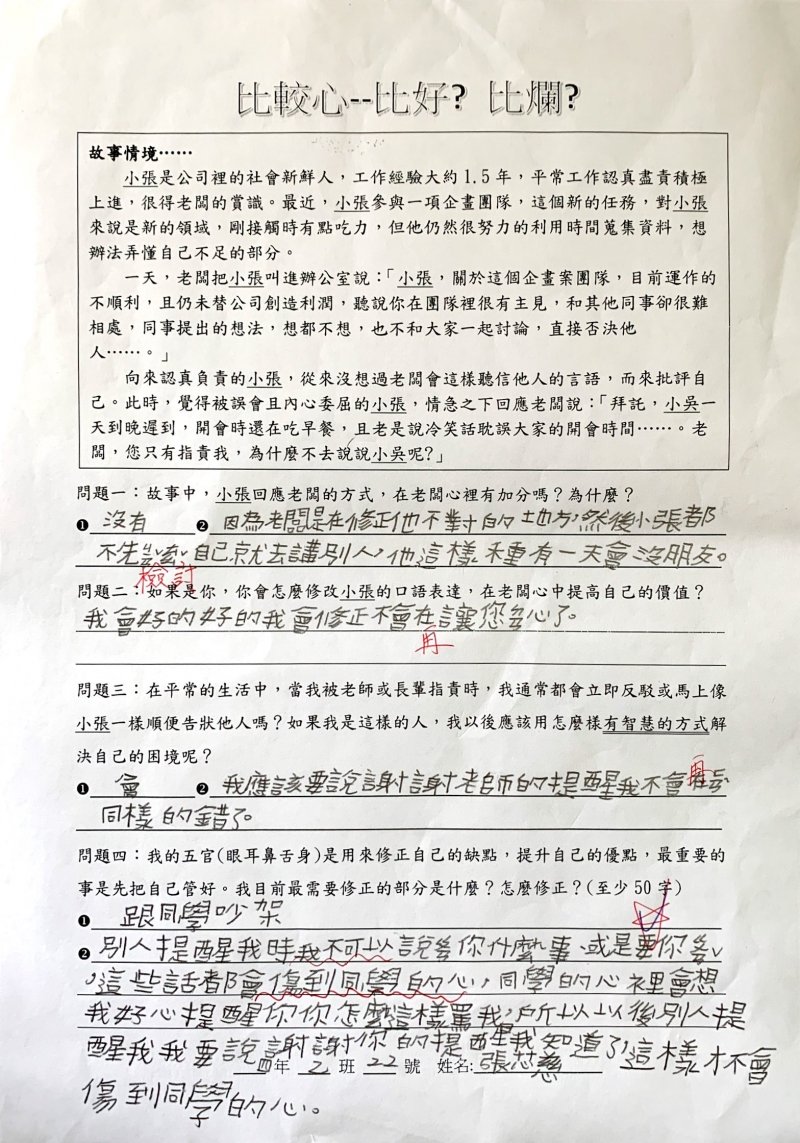 比較心--比好? 比爛?
故事情境……
小張是公司裡的社會新鮮人，工作經驗大約1.5年，平常工作認真盡責積極
上進，很得老闆的賞識。最近，小張參與一項企畫團隊，這個新的任務，對小張
來說是新的領域，剛接觸時有點吃力，但他仍然很努力的利用時間蒐集資料，想
辦法弄懂自己不足的部分。
一天，老闆把小張叫進辦公室說：「小張，關於這個企畫案團隊，目前運作的
不順利，且仍未替公司創造利潤，聽說你在團隊裡很有主見，和其他同事卻很難
相處，同事提出的想法，想都不想，也不和大家一起討論，直接否決他
人……。」
向來認真負責的小張，從來沒想過老闆會這樣聽信他人的言語，而來批評自
己。此時，覺得被誤會且內心委屈的小張，情急之下回應老闆說：「拜託，小吳一
天到晚遲到，開會時還在吃早餐，且老是說冷笑話耽誤大家的開會時間……。老
闆，您只有指責我，為什麼不去說說小吳呢?」
問題一：故事中，小張回應老闆的方式，在老闆心裡有加分嗎？為什麼？
❶ 沒有 ❷ 因為老闆是在修正他不對的地方，然後小張都
不先 自己就去講別人，他這樣 種有一天會沒朋友。
檢討
問題二：如果是你，你會怎麼修改小張的口語表達，在老闆心中提高自己的價值？
我會好的好的我會修正不會在讓您 心了。
再
問題三：在平常的生活中，當我被老師或長輩指責時，我通常都會立即反駁或馬上像
小張一樣順便告狀他人嗎？如果我是這樣的人，我以後應該用怎麼樣有智慧的方式解
決自己的困境呢？
再
❶ 會 ❷ 我應該要說謝謝老師的提醒我不會
同樣的錯了。
問題四：我的五官(眼耳鼻舌身)是用來修正自己的缺點，提升自己的優點，最重要的
事是先把自己管好。我目前最需要修正的部分是什麼？怎麼修正？(至少50字)
❶ 跟同學吵架
❷ 別人提醒我時我不可以說 你什麼事、或是要你 
，這些話都會傷到同學的心，同學的心裡會想
我好心提醒你你怎麼這樣罵我，所以以後別人提
醒我我要說謝謝你的提醒我知道了，這樣才不會
四年 乙 班 22 號 姓名: 張芯慈
傷到同學的心。